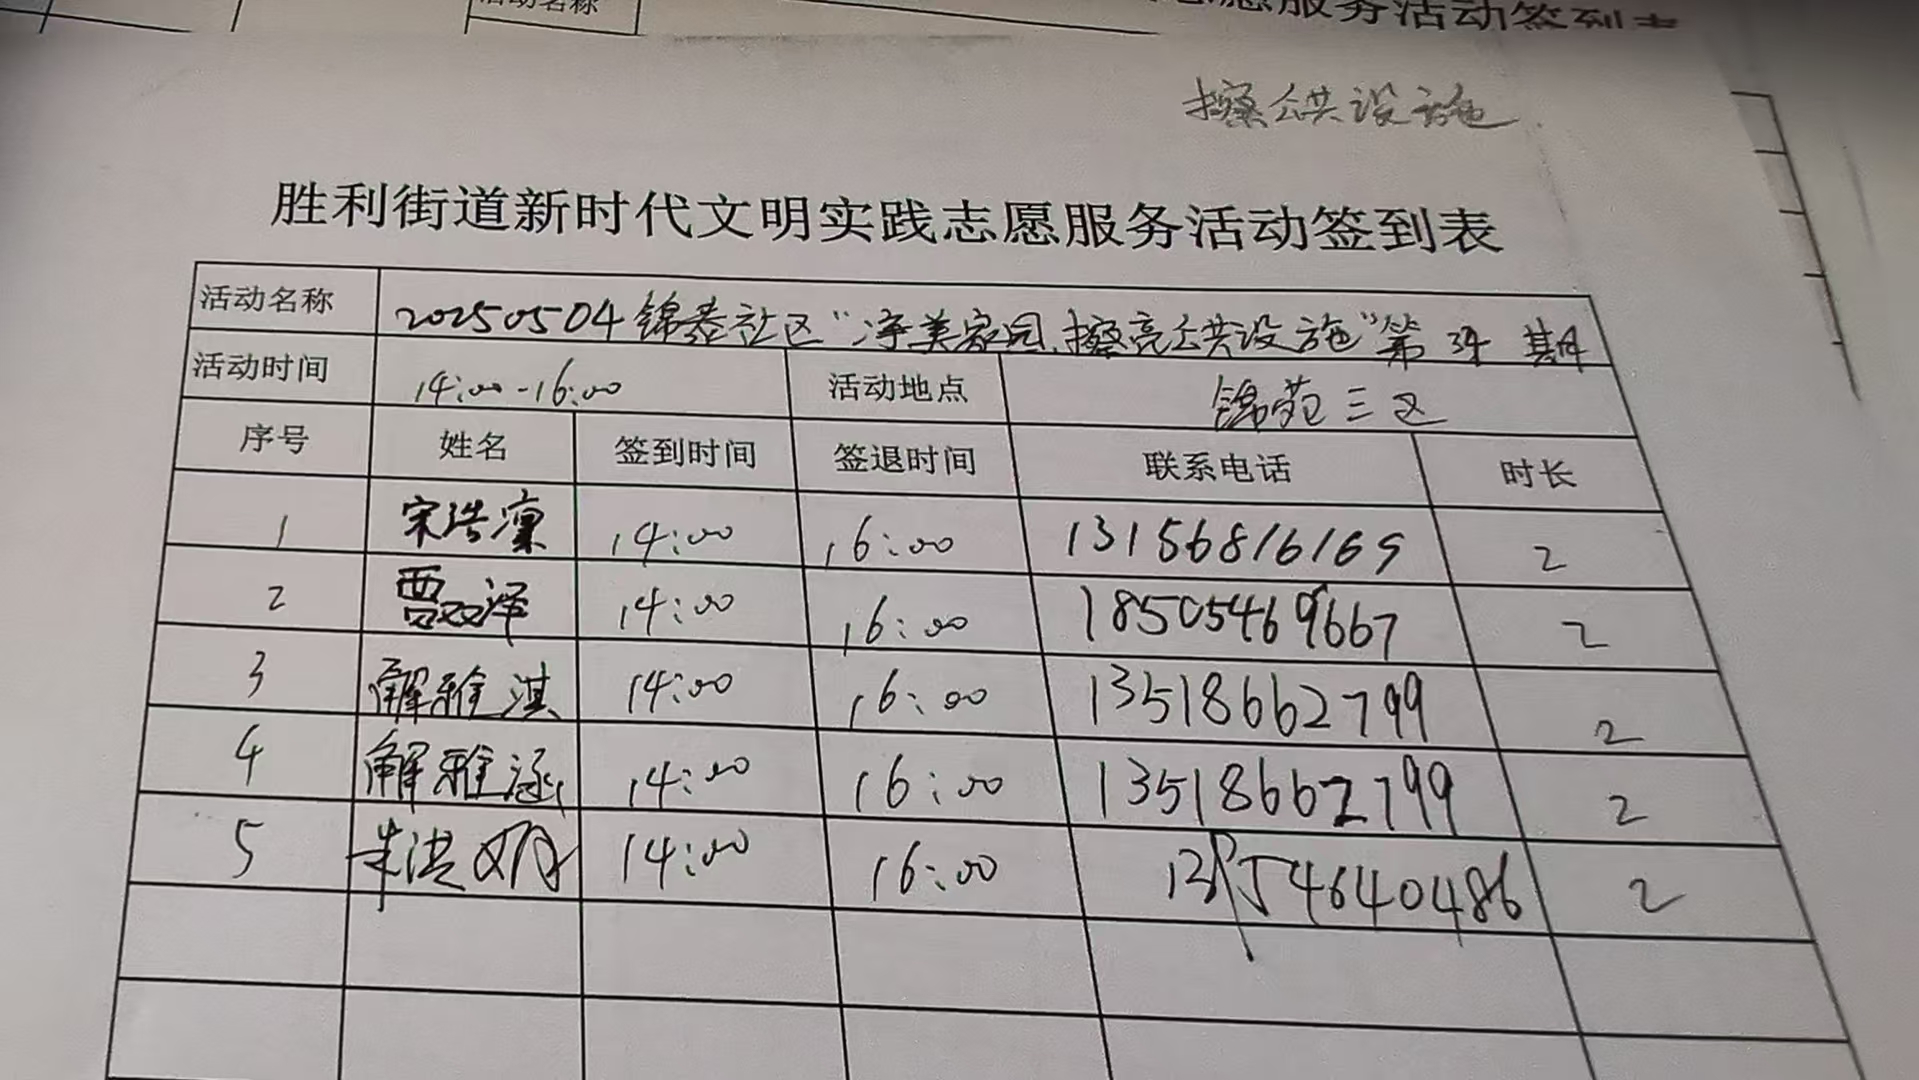 活动名称
志愿服务活动签到表
擦公共设施
胜利街道新时代文明实践志愿服务活动签到表
活动名称 20250504锦泰社区“净美家园,擦亮公共设施”第 期
活动时间 14:00-16:00 活动地点 锦苑三区
序号 姓名 签到时间 签退时间 联系电话 时长
1 宋浩凛 14:00 16:00 13156816169 2
2 贾双泽 14:00 16:00 18505469667 2
3 解雅淇 14:00 16:00 13518662799 2
4 解雅涵 14:00 16:00 13518662799 2
5 朱洪 14:00 16:00 2